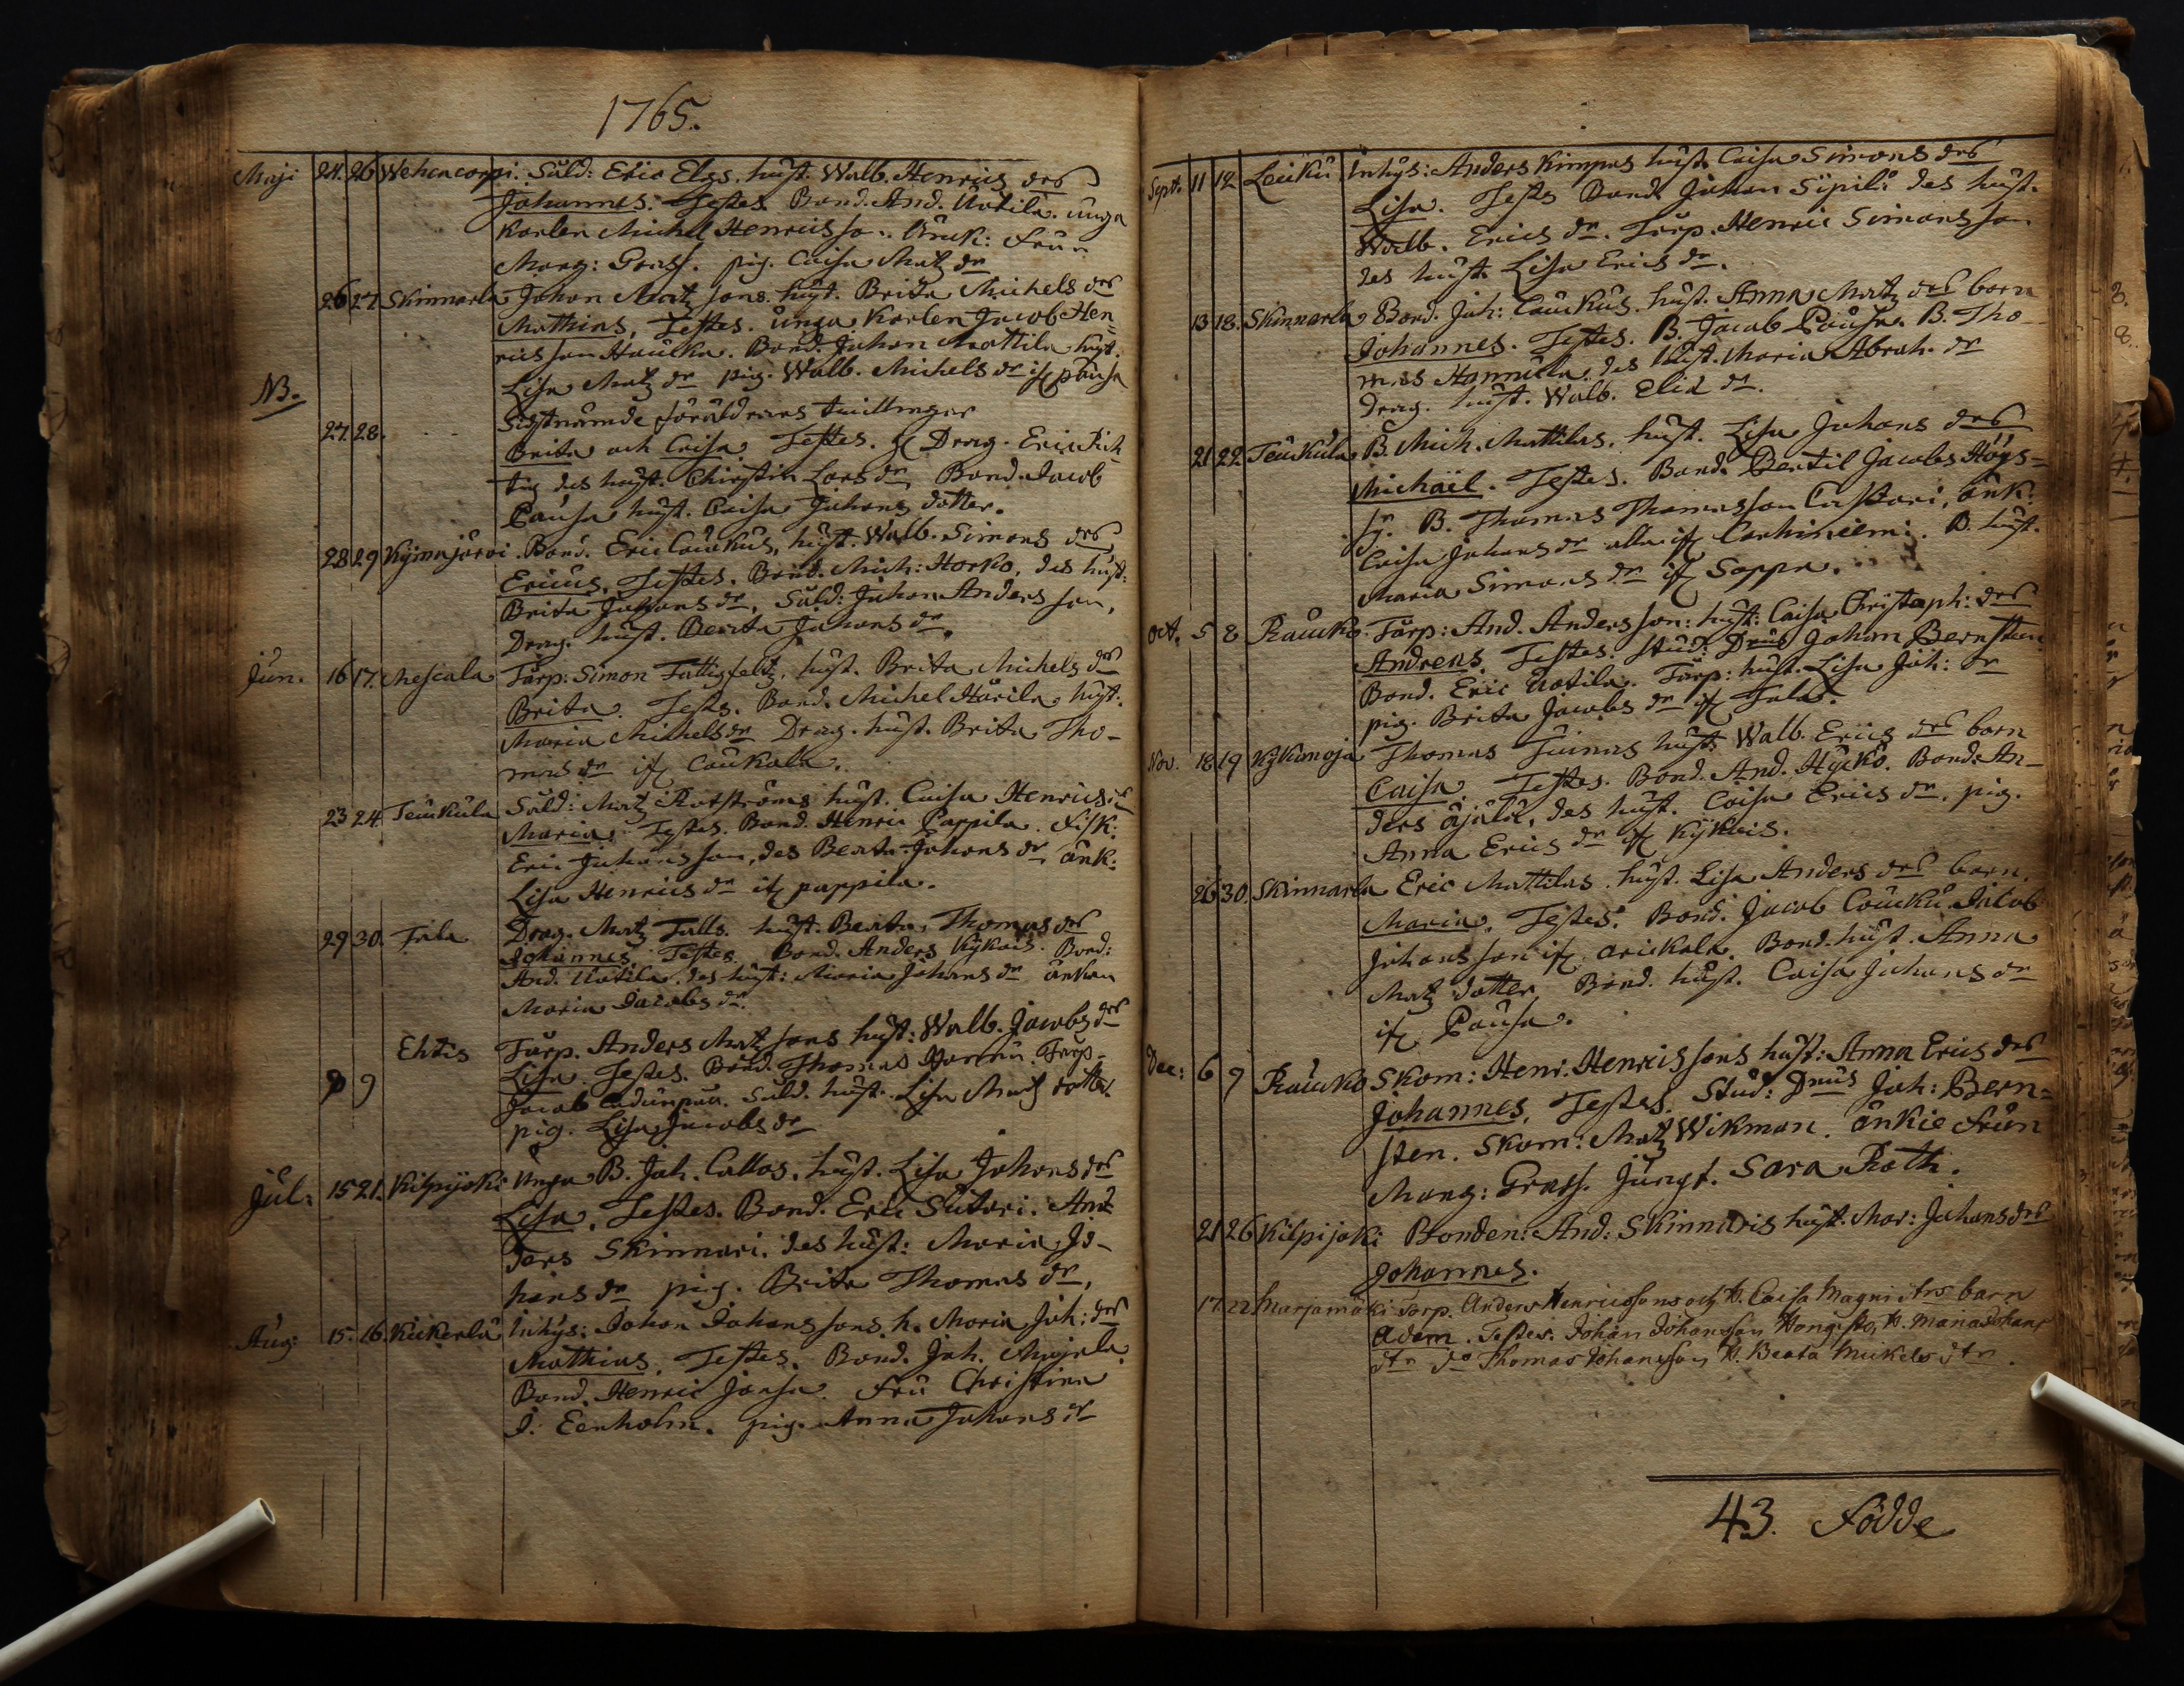 1765.
Maji 24. 26 Wehcacorpi. Såld: Eric Elgs. hust. Walb. Henrics drs
Johannes. Testes. Bond. And. Uotila. unga
Karlen Michel Henricsson. Änk: Frun
Marg: Grass. pig. Caisa Matz dr
26 27 Skinnarla Johan Matz sons. hust. Brita Michels drs
Mathias. Testes. unga Karlen Jacob Hen-
ricsson Haucka. Bond. Johan Mattila hust.
Lisa Matz dr pig. Walb. Michels dr if Pausa
NB.
Sistnämde föräldrars twillingar
27. 28. Brita och Caisa. Testes. Drag. Eric
des hust. Christin Lars dr Bond. Jacob
Pausa hust. Caisa Johans dotter.
28 29 Kyinajärvi. Bond. Eric Couckus, hust. Walb. Simons drs
Ericus. Testes. Bond. Mich: Horko, des hust:
Brita Johans dr, Såld: Johan Anders son,
Drag. hust. Beata Johans dr.
Jun. 16 17. Mescala Tårp: Simon Fattigfeltz. hust. Brita Michels drs
Brita. Testes. Bond. Michel Hårila hust.
Maria Michels dr Drag. hust. Brita Tho-
mas dr if Caukola.
23 24. Teuckula Såld: Matz Rotströms hust. Caisa Henrics dr
Maria. Testes. Bond. Henric Pappila. Fisk:
Eric Johans son, des Beata Johans dr änk:
Lisa Henrics dr if pappila.
29 30. Tala Drag. Matz Talls. hust. Beata Thomas drs
Johannes. Testes. Bond. Anders Kykais. Bond:
And. Uotila des hust: Maria Johans dr änkan
Maria Jacobs dr.
Ehtis Tårp. Anders Matz sons hust: Walb. Jacobs drs
9 Lisa. Testes. Bond. Thomas Tårp-
Jacob Såld. hust. Lisa Matz dotter.
pig. Lisa Jacobs dr
Jul: 15 21. Kilpijoki Unga B. Joh. Callos. hust. Lisa Johans drs
Lisa. Testes. Bond. Eric Sutari. An-
ders Skinnari. des hust: Maria Jo-
hans dr pig. Brita Thomas dr,
Aug: 15. 16. Kuckerla Inhys: Johan Johans sons h. Maria Joh: drs
Mathias. Testes. Bond. Joh. Anjala
Bond. Henric Jansa. Fru Christina
D. Eenholm. pig. Anna Johans dr
Sept. 11 12 Leuku. Inhys: Anders Kimpas hust. Caisa Simons drs
Lisa. Testes Bond. Johan Sipilä des hust.
Walb. Erics dr. Tårp. Henric Simons son
des hust. Lisa Erics dr.
13 18. Skinnarla Bond. Joh: Couckus. hust. Anna Matz drs barn
Johannes. Testes. B. Jacob Pausa. B. Tho-
mas Hannula des hust. Maria Abrah. dr
Drag. hust. Walb. Elia dr.
21 22 Teuckula B. Mich. Mattilas. hust. Lisa Johans drs
Michaël. Testes. Bond. Bertil Jacobs Höys-
B. Thomas Thomasson Custari, änk:
Caisa Johans dr alla if Carhiniemi. B. hust.
Maria Simons dr if Soppa.
Oct. 5 8 Raucko. Tårp: And. Anders son: hust: Caisa Christoph: drs
Andreas. Testes. Stud: Dnus Johan Bernsteen
Bond. Eric Uotila. Tårp: hust. Lisa Joh: dr
pig. Brita Jacobs dr if Tala.
Nov. 18 19 Kykanoja Thomas Tuinas hust. Walb. Erics drs barn
Caisa. Testes. Bond. And. Hycko. Bond. An-
ders Äjälä, des hust. Caisa Erics dr. pig.
Anna Erics dr if Kykais.
26 30. Skinnarla Eric Mattilas. hust. Lisa Anders drs barn.
Maria. Testes. Bond. Jacob Coucku Jacob
Johans son if arickala. Bond. hust. Anna
Matz dotter Bond. hust. Caisa Johans dr
if Pausa.
Dec: 6 9 Raucko Skom: Henr. Henrics sons hust: Anna Erics drs
Johannes. Testes. Stud: Dnus Joh: Bern-
sten. Skom: Matz Wikman. Änkie Frun
Marg: Grass. Jungf. Sara Roth.
21 26 Kilpijoki Bonden: And: Skinnaris hust. Mar: Johans drs
Johannes.
17. 22 Marjamäki Torp. Anders Henricssons och H. Caisa Magni drs barn
Adam. Testes. Johan Johansson Hongisto, H. Maria Johans
dtr do Thomas Johansson H. Beata Mickels dtr.
43. Födde